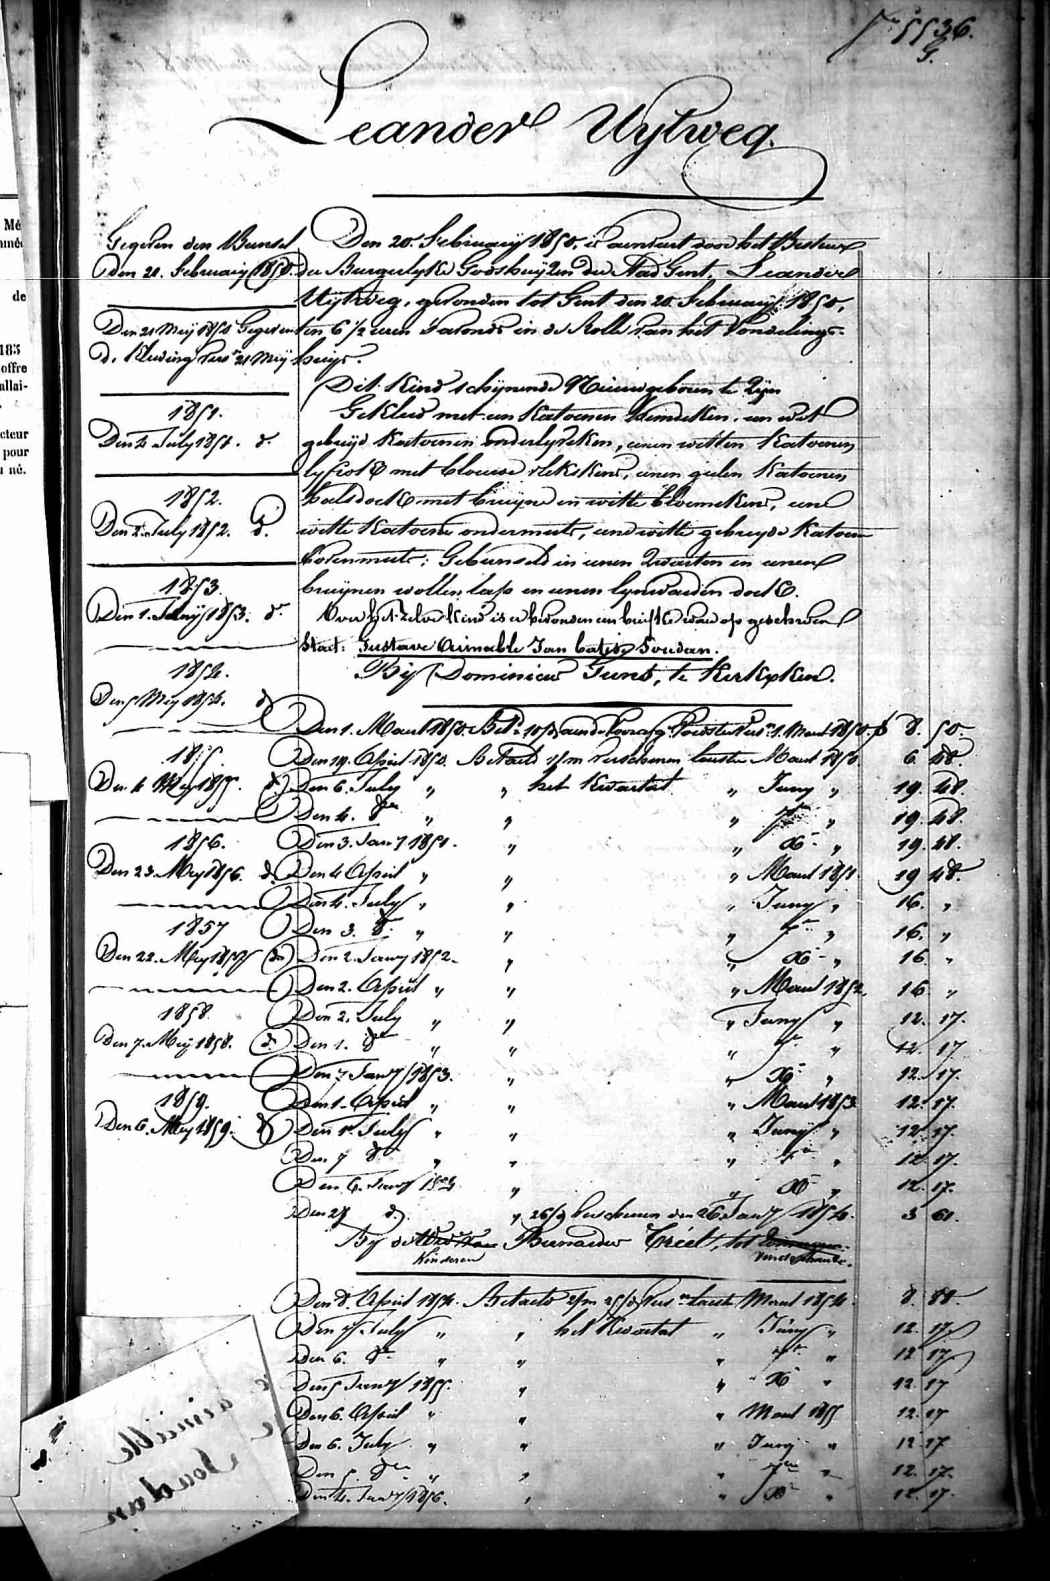 N° 5536.
G.
Leander Uytweg.
Gegeven den Bunsel
Den 21. February 1850.
Den 21 Meij 1850 Gegeven
d. Kleeding vers. 21 Meij
1851.
Den 4 July 1851. d.
1852.
Den 2. July 1852. d.
1853.
Den 1. July 1853. d.
1854.
Den 5 Mey 1854. d
1855
Den 4 Mey 1855. d.
1856.
Den 23. Mey 1856. d.
1857
Den 22. Mey 1857 d.
1858.
Den 7. Meij 1858. d.
1859.
Den 6. Mey 1859. d
Den 20. February 1850, is aenveert door het Bestuer
der Burgerlyke Godshuyzen der Stad Gent, Leander
Uytweg, gevonden tot Gent den 20 February 1850,
ten 6 1/2 uren s'avonds in de Rolle van het Vondelings-
huys.
Dit Kind schynende Nieuwgeboren te Zyn
Gekleed met een Katoenen hemdeken, een wit
gebreyd Katoenen onderlyveken, eenen witten Katoenen
lyfrok met blauwe vlekskens, eenen geelen Katoenen
halsdoek met bruyne en witte bloemekens, een
witte Katoene ondermuts, eene witte gebreyde Katoene
bovenmuts; Gebunseld in eenen Zwarten en eenen
bruynen wollen lap en eenen lynwaeden doek.
Over het Zelve Kind is er bevonden een briefke waer op geschreven
staet: Gustave Aimable Jan batist Soudan.
By Dominicus Guns, te Kerkxken.
Den 1. Maert 1850. Bet. 1. Maert 1850. 8. 50.
Den 19. April 1850. Betaeld verschenen laetste Maert 1850 6. 48.
Den 6. July " " het Kwartael " Juny " 19. 48.
Den 4. 8ber " " " 7ber " 19. 48.
Den 3. Jany 1851. " " Xber " 19. 48.
Den 4 April " " " Maert 1851 19 48.
Den 4. July " " " Juny " 16. "
Den 3. 8. " " " 7ber " 16. "
Den 2. Jany 1852. " " Xber " 16 "
Den 2. April " " " Maert 1852. 16 "
Den 2. July " " " Juny " 12. 17.
Den 1. 8ber " " " 7ber " 12. 17
Den 7 Jany 1853. " " Xber " 12. 17.
Den 1. April " " " Maert 1853 12. 17.
Den 1. July " " " Juny " 12. 17.
Den 7 8. " " " 7ber " 12 17.
Den 6. Jany 1854 " " Xber " 12. 17.
Den 27 d. " verschenen den 26 Jany 1854. 3 61.
By de Kinderen Bernardus Créél, tot
Den 8. April 1854. Betaeld laetste Maert 1854 8. 88.
Den 7 July " " het Kwartael " Juny " 12. 17
Den 6. 8ber " " " 7ber " 12 17
Den 5 Jany 1855. " " Xber " 12. 17
Den 6. April " " " Maert 1855 12. 17
Den 6. July " " " Juny " 12 17
Den 5. 8ber " " " 7ber " 12. 17.
Den 4. Jany 1856. " " Xber " 12. 17.